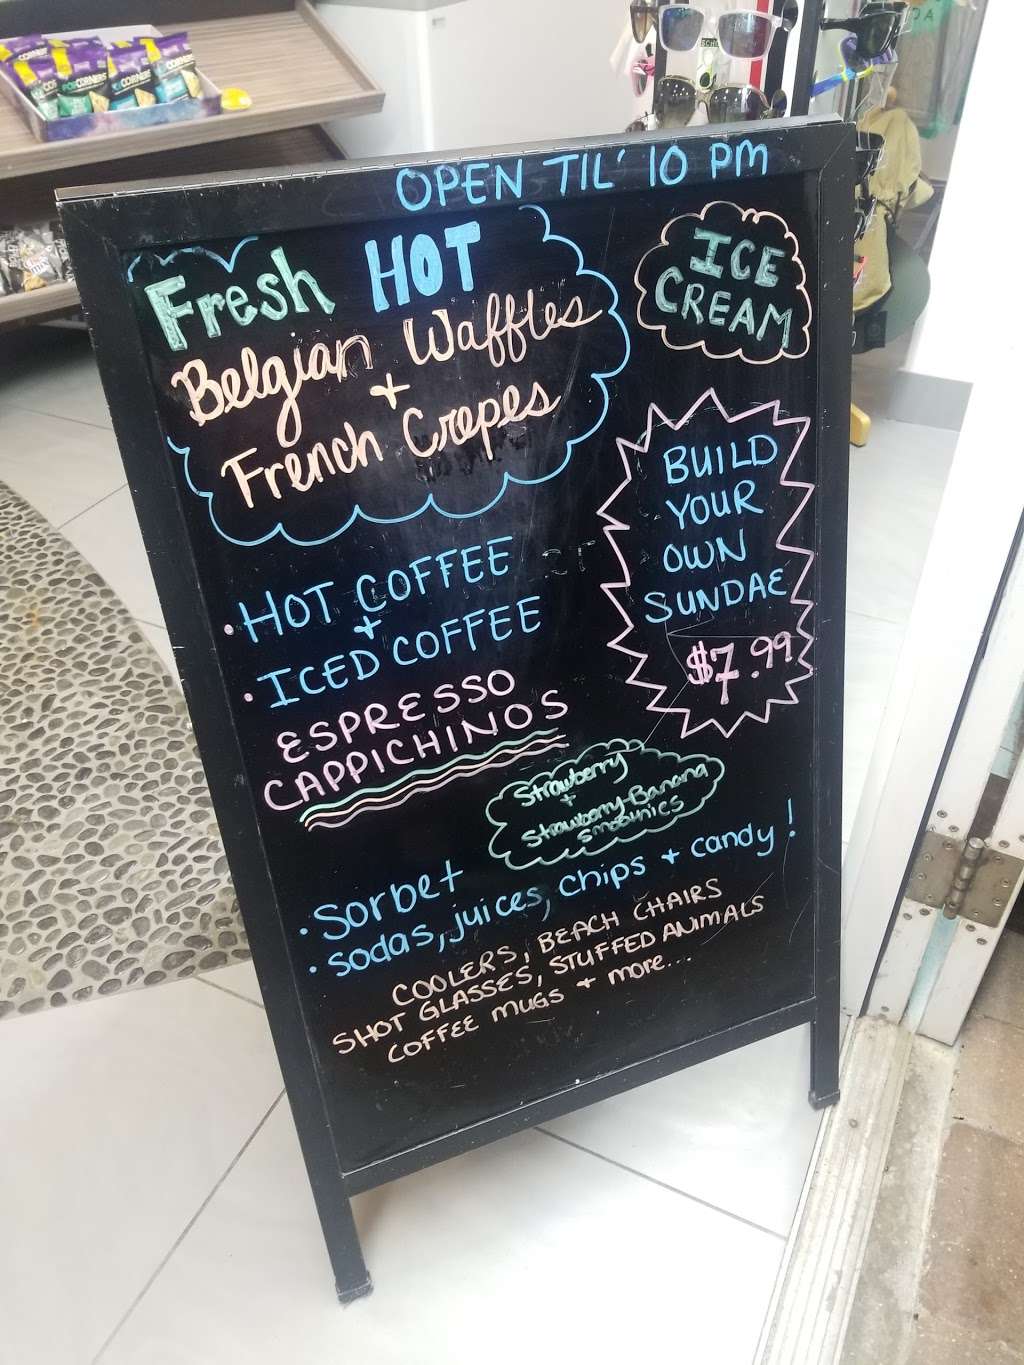 OPEN TIL' 10 PM
Fresh HOT
Belgian Waffles
+
French Crepes
ICE
CREAM
BUILD
YOUR
OWN
SUNDAE
$7.99
• HOT COFFEE
+
• ICED COFFEE
ESPRESSO
CAPPICHINOS
Strawberry
+
Strawberry-Banana
Smoothies
• Sorbet
• sodas, juices, chips + candy!
COOLERS, BEACH CHAIRS
SHOT GLASSES, STUFFED ANIMALS
COFFEE MUGS + more...
POPCORNERS